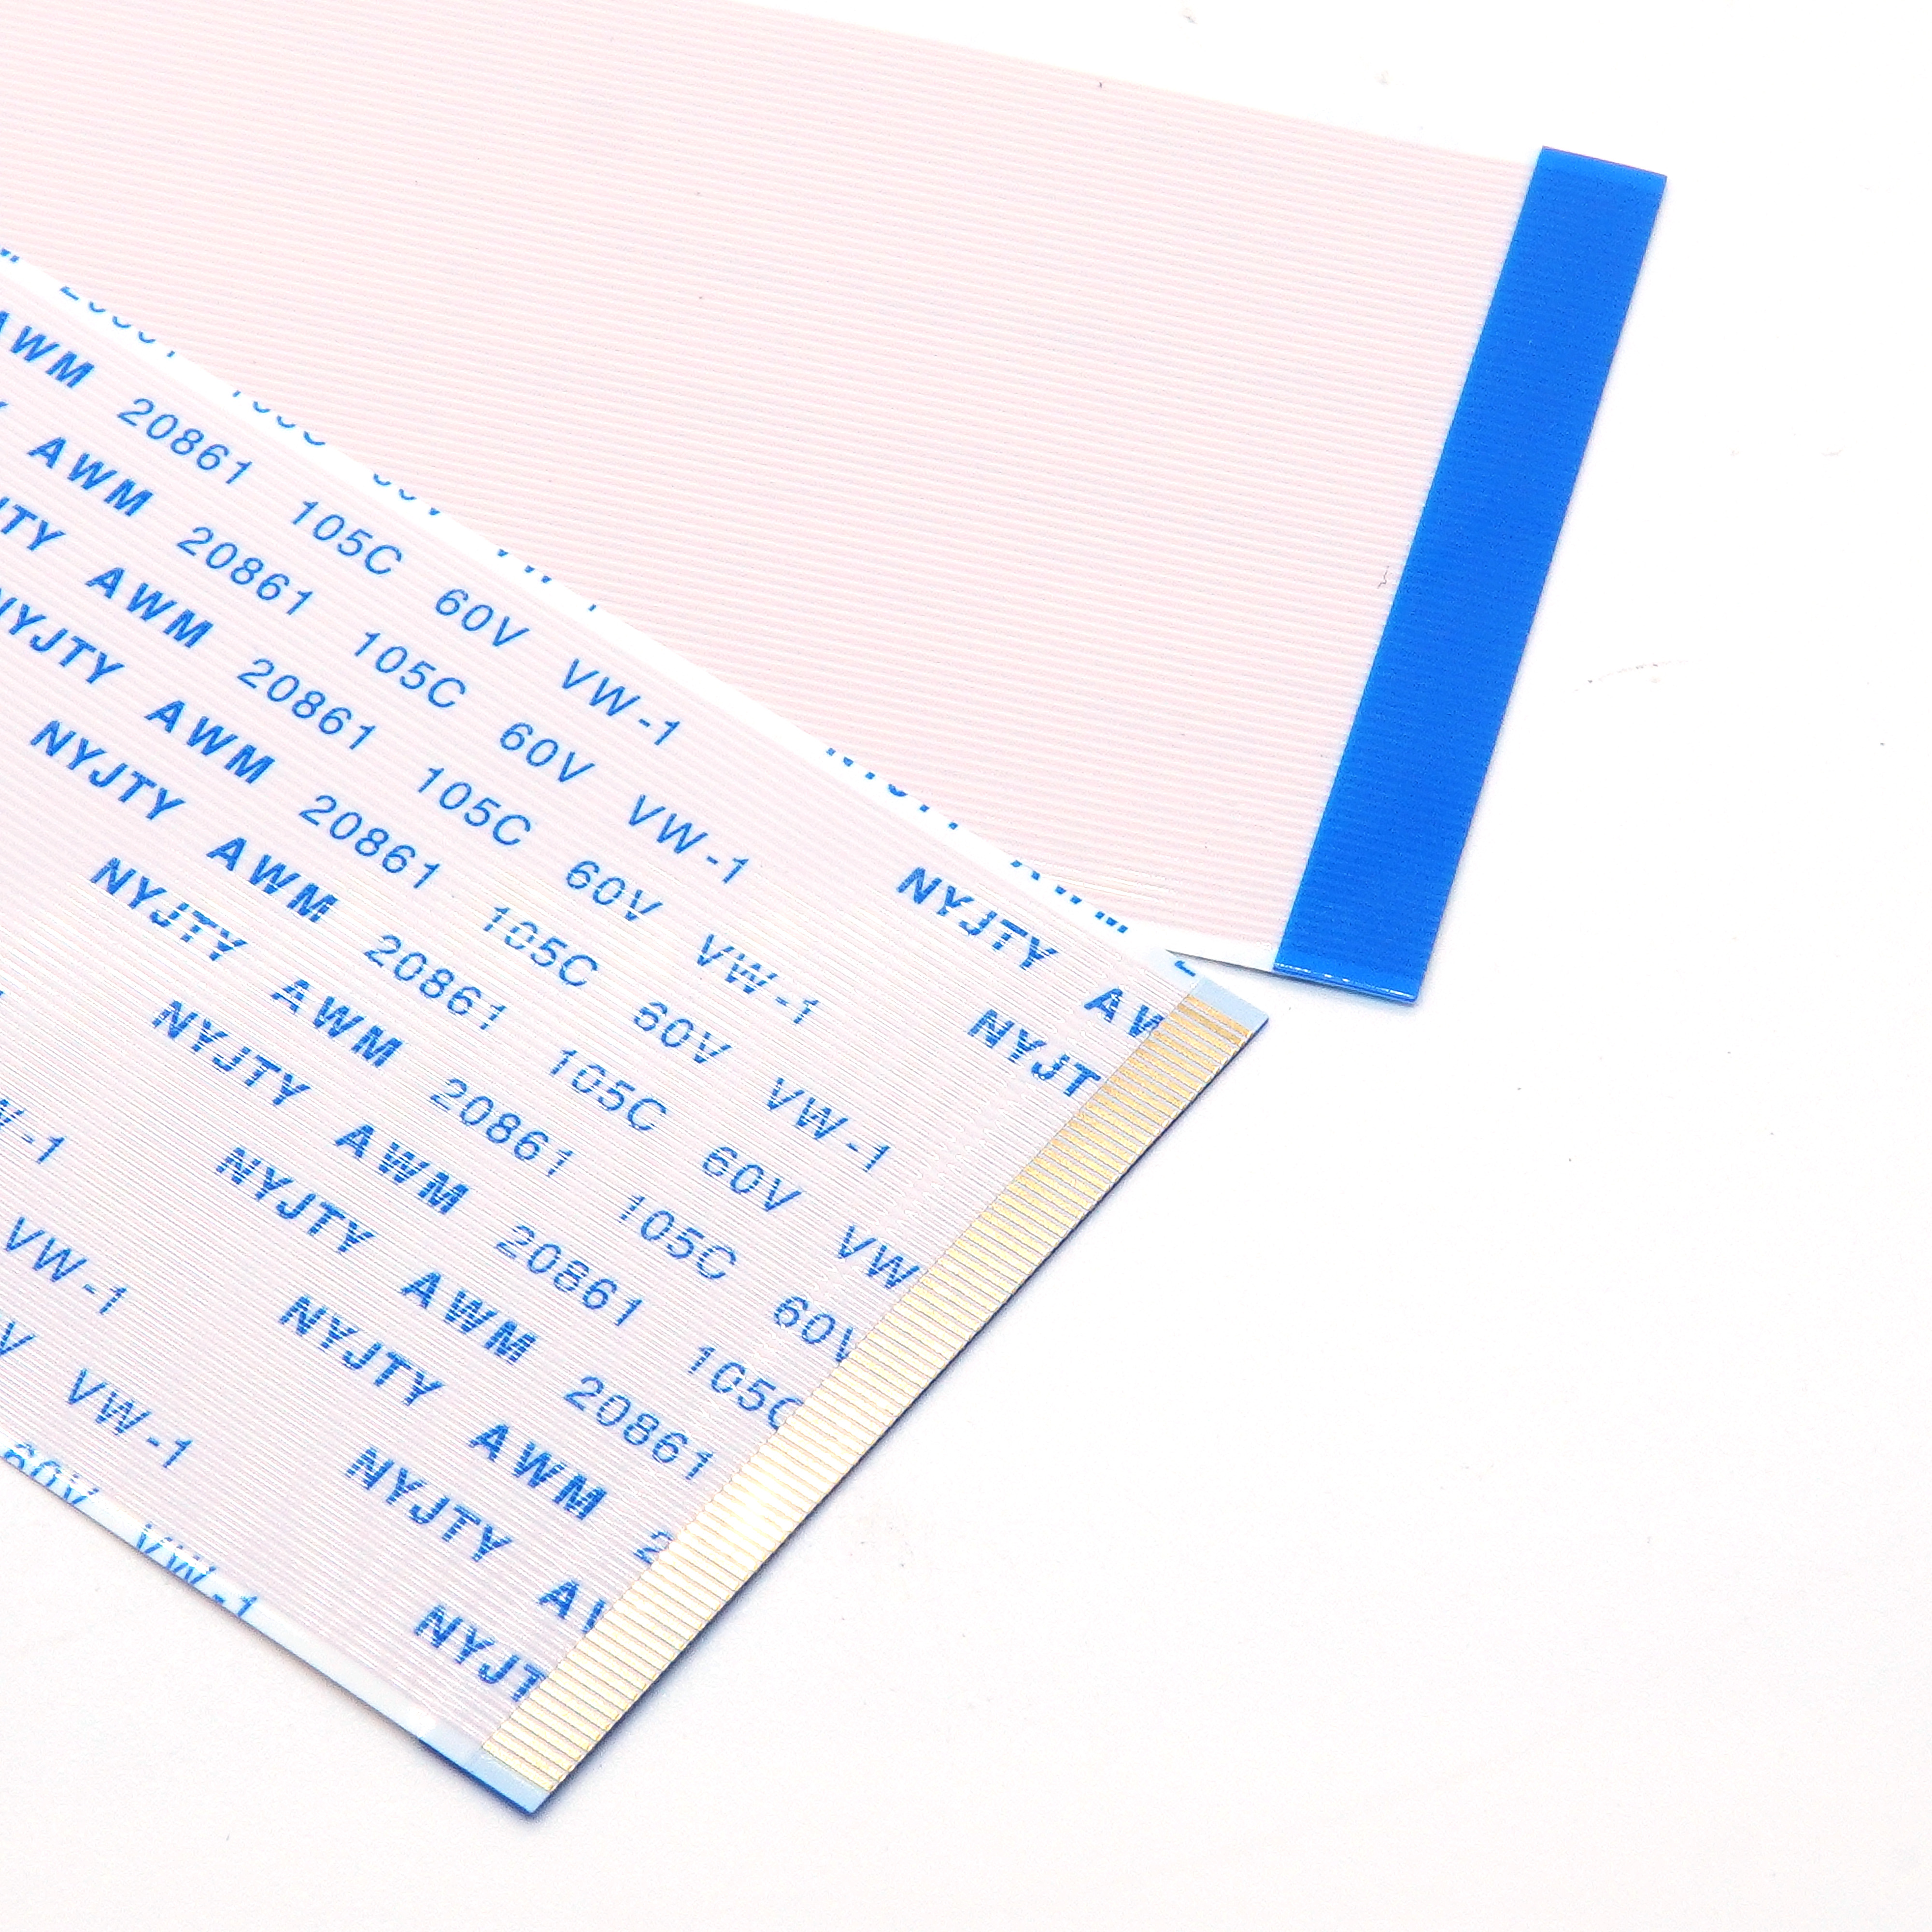 AWM 20861 105C 60V VW-1 NYJTY
AWM 20861 105C 60V VW-1 NYJT
NYJTY AWM 20861 105C 60V VW-1
NYJTY AWM 20861 105C 60V VW-1
NYJTY AWM 20861 105C 60V VW
NYJTY AWM 20861 105C 60V
VW-1 NYJTY AWM 20861 105C
VW-1 NYJTY AWM 20861
VW-1 NYJTY AWM
60V VW-1 NYJTY